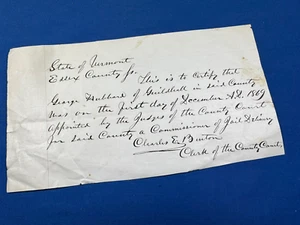 State of Vermont
Essex County Ss.
This is to Certify that
George Hubbard of Guildhall in said County
was on the first day of December A.D. 1869
appointed by the Judges of the County Court
for said County a Commissioner of Jail Delivery
Charles E. Benton
Clerk of the County Court.